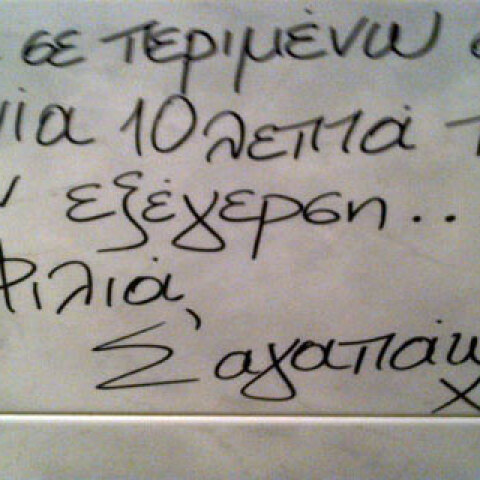 σε περιμένω
10 λεπτά
εξέγερση..
Φιλιά,
Σ' αγαπάω
χ